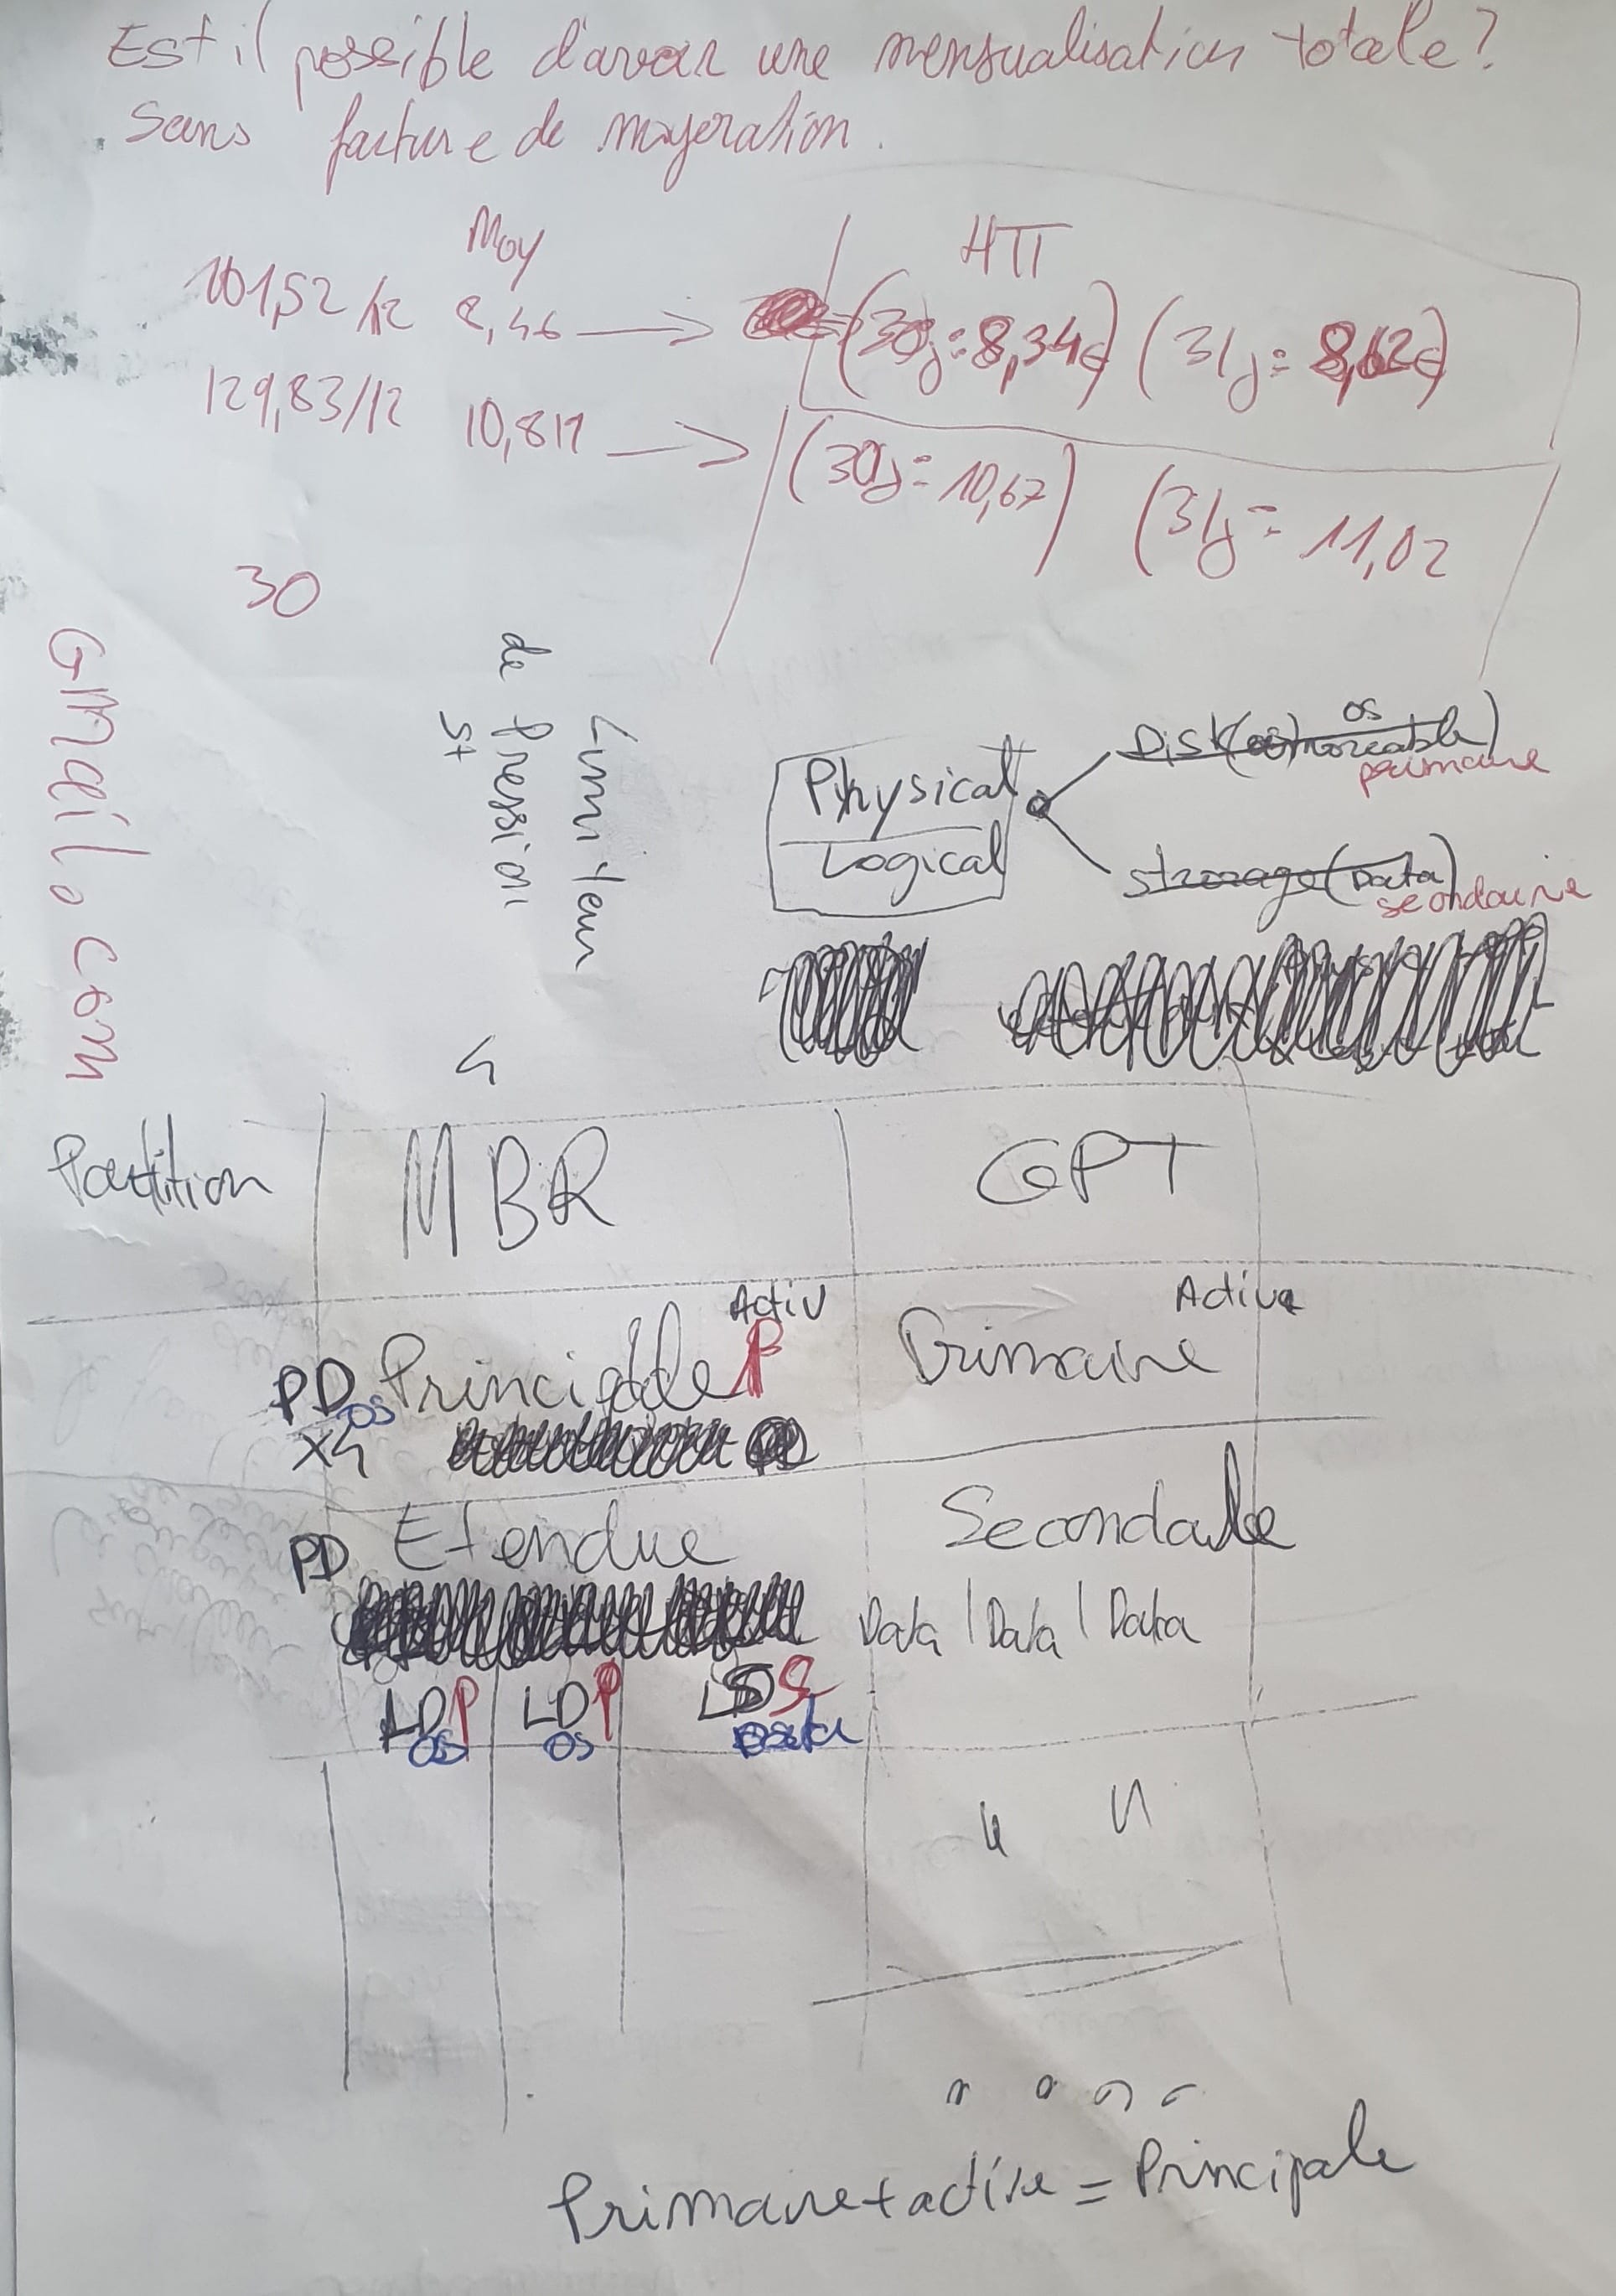 Est il possible d'avoir une mensualisation totale?
Sans facture de moyeration.
Moy
HTT
101,52/12 8,46 → (30j=8,34€) (31j=8,62€)
129,83/12 10,817 → (30j=10,67) (31j=11,02
30
Gmail.com
Limiteur
de Pression
St
Physical
Logical
Disk(os)moreable)
os
primaire
strorage(Data)
secondaire
4
Partition MBR GPT
Activ Active
PD Principale P Primaire
os
x4
PD Etendue Secondaire
Data | Data | Data
LDP LDP LDS
os os Data
" "
Primaire+active=Principale